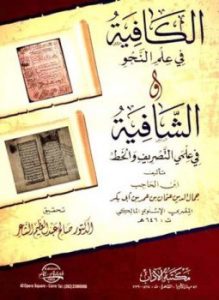 الكافية
في علم النحو
و
الشافية
في علمي التصريف والخط
تأليف
ابن الحاجب
جمال الدين عثمان بن عمر بن أبي بكر
المصري الإسنوي المالكي
ت: ٦٤٦ هـ
تحقيق
الدكتور صالح عبد العظيم الشاعر
مكتبة الآداب